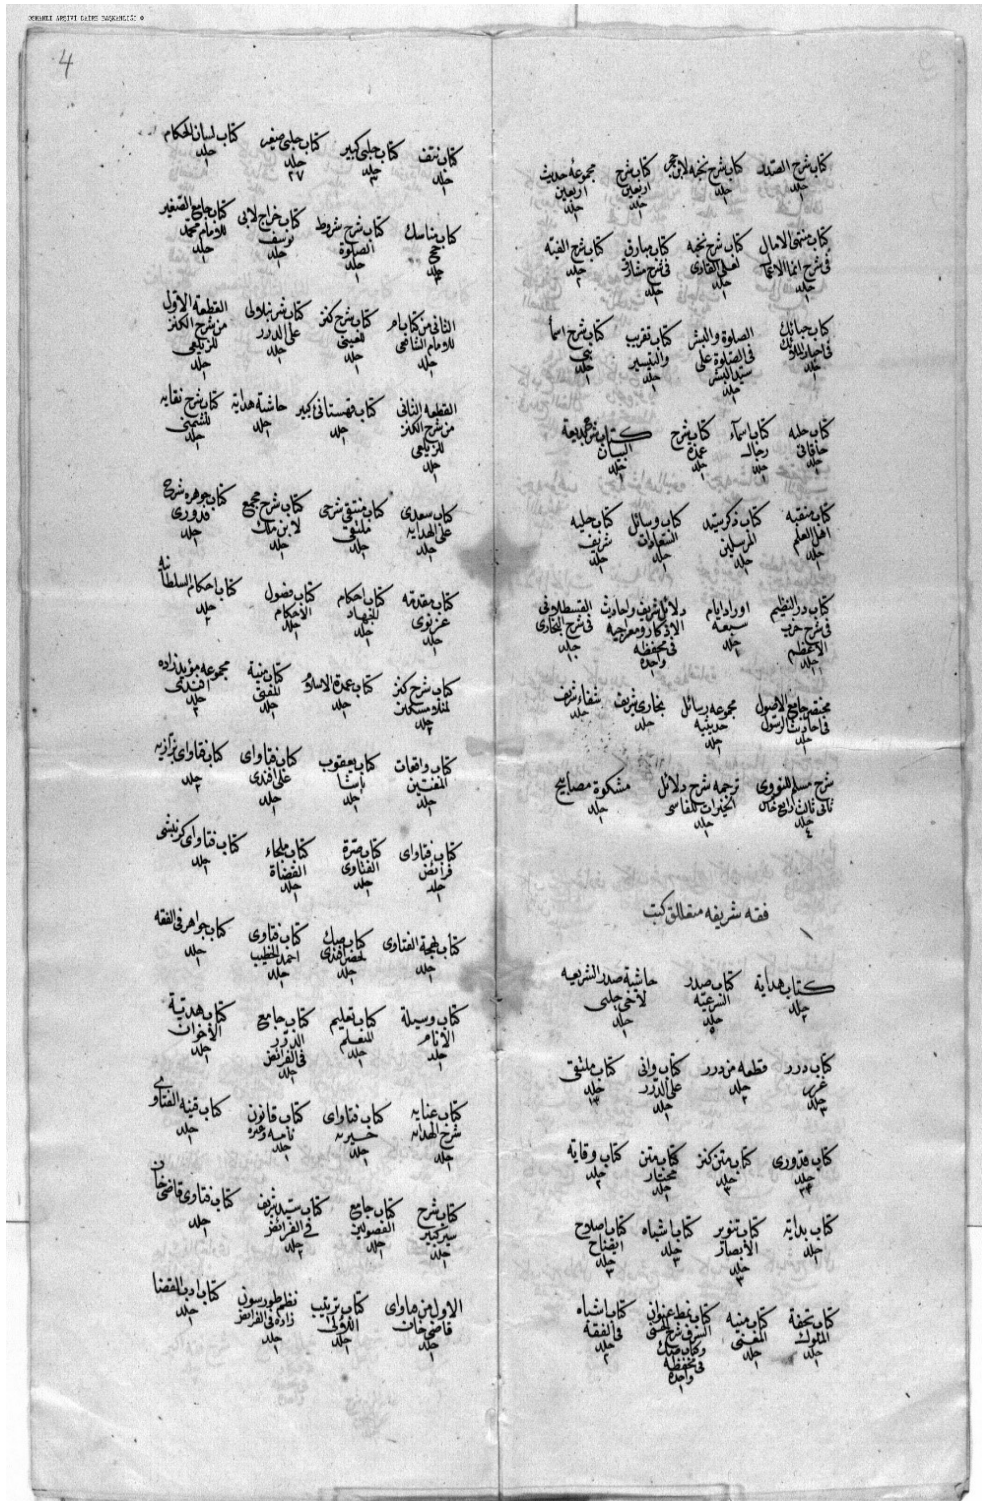 OSMANLI ARŞİVİ DAİRE BAŞKANLIĞI
4
كتاب شرح الصدر جلد ١ كتاب شرح نخبه لابن حجر جلد ١ كتاب شرح اربعين جلد ١ مجموعه حديث اربعين جلد ١
كتاب منتهى الامال فى شرح انما الاعمال جلد ١ كتاب شرح نخبه لعلى القارى جلد ١ كتاب مبارق فى شرح مشارق جلد ١ كتاب شرح الفيه جلد ٢
كتاب حبائك فى اخبار الملائك جلد ١ الصلوة والبشر فى الصلوة على سيد البشر جلد ١ كتاب تقريب والتيسير جلد ١ كتاب شرح اسما نبى جلد ١
كتاب حليه خاقانى جلد كتاب اسماء رجال جلد ١ كتاب شرح عمده جلد ١ كتاب شرح بديعة البيان جلد ١
كتاب منقبه اهل العلم جلد ١ كتاب ذكر سيد المرسلين جلد ١ كتاب وسائل السعادات جلد ١ كتاب حليه شريف جلد ١
كتاب در النظيم فى شرح حزب الاعظم جلد ١ اوراد ايام سبعه جلد ١ دلائل شريف واحاديث الاذكار ومعراجيه فى محفظة واحدة القسطلانى فى شرح البخارى جلد ١٠
مختصر جامع الاصول فى احاديث الرسول جلد ١ مجموعه رسائل حديثيه جلد ١ بخارى شريف جلد شفاء شريف جلد
شرح مسلم للنووى ثانى ثالث رابع خامس جلد ٤ ترجمه شرح دلائل الخيرات للفاسى جلد ١ مشكوة مصابيح جلد ١
فقه شريفه متعلق كتب
كتاب هداية جلد ٢ كتاب صدر الشريعة جلد ٥ حاشية صدر الشريعه لاخى جلبى جلد ١
كتاب درر غرر جلد ٣ قطعه من درر جلد ٢ كتاب وانى على الدرر جلد ١ كتاب ملتقى جلد ١٣
كتاب قدورى جلد ٣٤ كتاب متن كنز جلد ٣ كتاب متن مختار جلد ١ كتاب وقاية جلد ٢
كتاب بداية جلد ١ كتاب تنوير الابصار جلد ٣ كتاب اشباه جلد ٣ كتاب اصلاح ايضاح جلد ٣
كتاب تحفة الملوك جلد ١ كتاب منيه المفتى جلد ١ فى محفظة واحدة ١ كتاب اشباه فى الفقه جلد ٢
كتاب نتف جلد ١ كتاب جلبى كبير جلد ٣ كتاب جلبى صغير جلد ٢٧ كتاب لسان الحكام جلد ١
كتاب مناسك حج جلد كتاب شرح شروط الصلوة جلد ١ كتاب خراج لابى يوسف جلد ١ كتاب جامع الصغير للامام محمد جلد ١
الثانى من كتاب ام للامام الشافعى جلد ١ كتاب شرح كنز للعينى جلد ١ كتاب شرنبلالى على الدرر جلد ١ القطعة الاول من شرح الكنز للزيلعى جلد ١
القطعه الثانى من شرح الكنز للزيلعى جلد ١ كتاب قهستانى كبير جلد ١ حاشية هداية جلد ١ كتاب شرح نقايه للشمنى جلد ١
كتاب سعدى على الهدايه جلد ١ كتاب منتقى شرحى ملتقى جلد ١ كتاب شرح مجمع لابن ملك جلد ١ كتاب جوهره شرح قدورى جلد ١
كتاب مقدمه غزنوى جلد ١ كتاب احكام الجهاد جلد ١ كتاب فصول الاحكام جلد ١ كتاب احكام السلطانيه جلد ٢
كتاب شرح كنز لمنلا مسكين جلد ٢ كتاب عمدة الاسلام جلد ١ كتاب منية المفتى جلد ١ مجموعه مؤيد زاده افندى جلد ٣
كتاب واقعات المفتين جلد ١ كتاب يعقوب پاشا جلد ١ كتاب فتاواى على افندى جلد ١ كتاب فتاواى بزازيه جلد ٢
كتاب فتاواى فرائض جلد ١ كتاب صرة الفتاوى جلد ١ كتاب ملجاء القضاة جلد ١ كتاب فتاواى جلد ١
كتاب بهجة الفتاوى جلد ١ كتاب صك لخضر افندى جلد ١ كتاب فتاوى احمد الخطيب جلد ١ كتاب جواهر فى الفقه جلد ١
كتاب وسيلة الانام جلد ١ كتاب تعليم المتعلم جلد ١ كتاب جامع الدرر فى الفرائض جلد ١ كتاب هدية الاخوان جلد ١
كتاب عنايه شرح الهدايه جلد ١ كتاب فتاواى خيريه جلد ١ كتاب قانون نامه وغيره جلد ١ كتاب قنيه الفتاوى جلد ١
كتاب شرح سير كبير جلد ١ كتاب جامع الفصولين جلد ١ كتاب سيد شريف فى الفرائض جلد ٢ كتاب فتاوى قاضى خان جلد ١
الاول من حاواى قاضى خان جلد ١ كتاب ترتيب جلد ١ نظم طورسون زاده فى الفرائض جلد ١ كتاب ادب القضا جلد ١